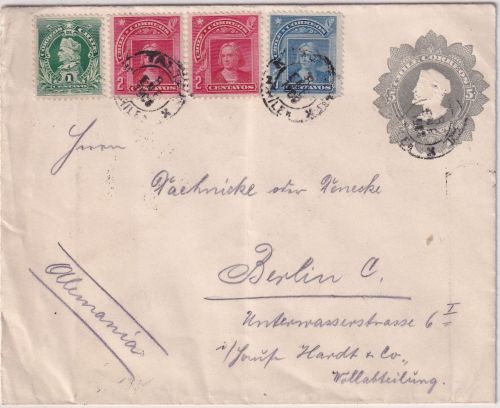 CHILE CORREOS
1
CENTAVO
CHILE CORREOS
2
CENTAVOS
CHILE CORREOS
2
CENTAVOS
CHILE CORREOS
CENTAVOS
CHILE CORREOS
5 5
Herrn
Dachnicke oder Dönecke
Berlin C.
Unterwasserstrasse 6 I
Alemania
i/ Hause Hardt & Co,
Wollabteilung.